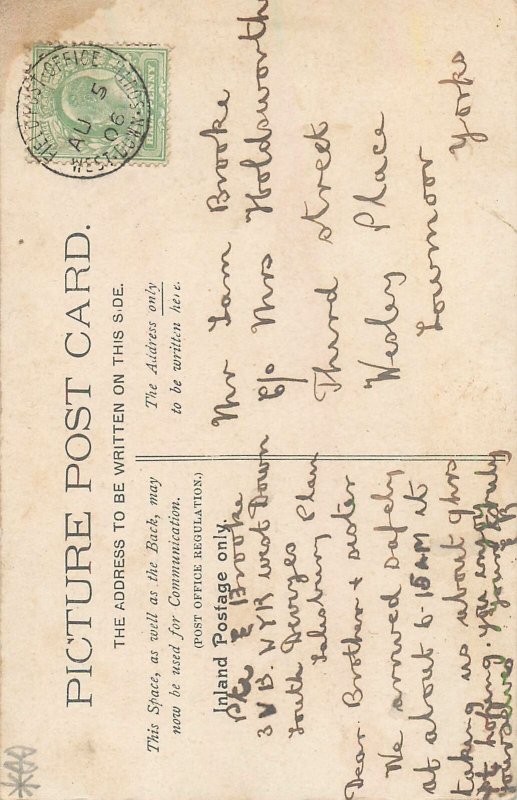 PICTURE POST CARD.
THE ADDRESS TO BE WRITTEN ON THIS SIDE.
This Space, as well as the Back, may
now be used for Communication.
(POST OFFICE REGULATION.)
Inland Postage only.
Pte E Brooke
3 V B. WYR West Down
South Devizes
Salisbury Plain
Dear Brother & sister
We arrived safely
at about 6-15 AM it
taking us about 9 hrs
hoping you enjoy
yourselves yours truly
EB
The Address only
to be written here.
Mr Sam Brooke
C/o Mrs Holdsworth
Third street
Wesley Place
Lowmoor
Yorks
FIELD POST OFFICE
AU 5
06
WEST-DOWN-SOUTH